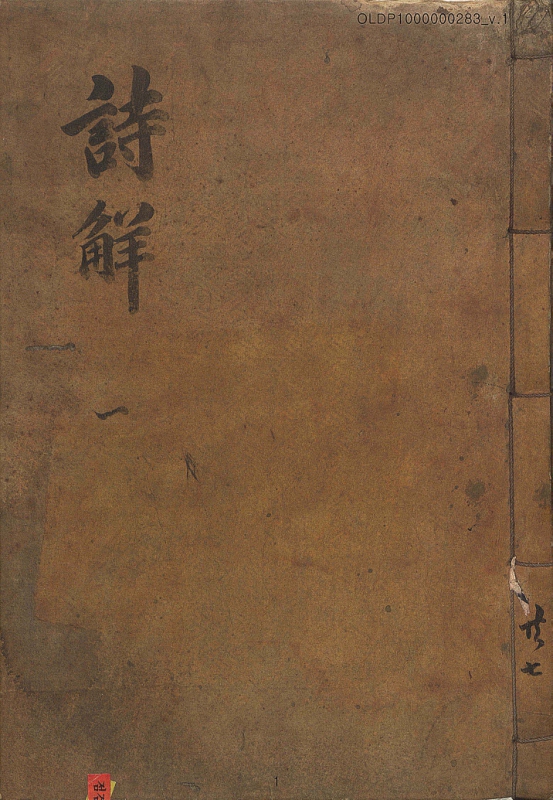 OLDP1000000283_v.1
詩觧
一
一
共七
1